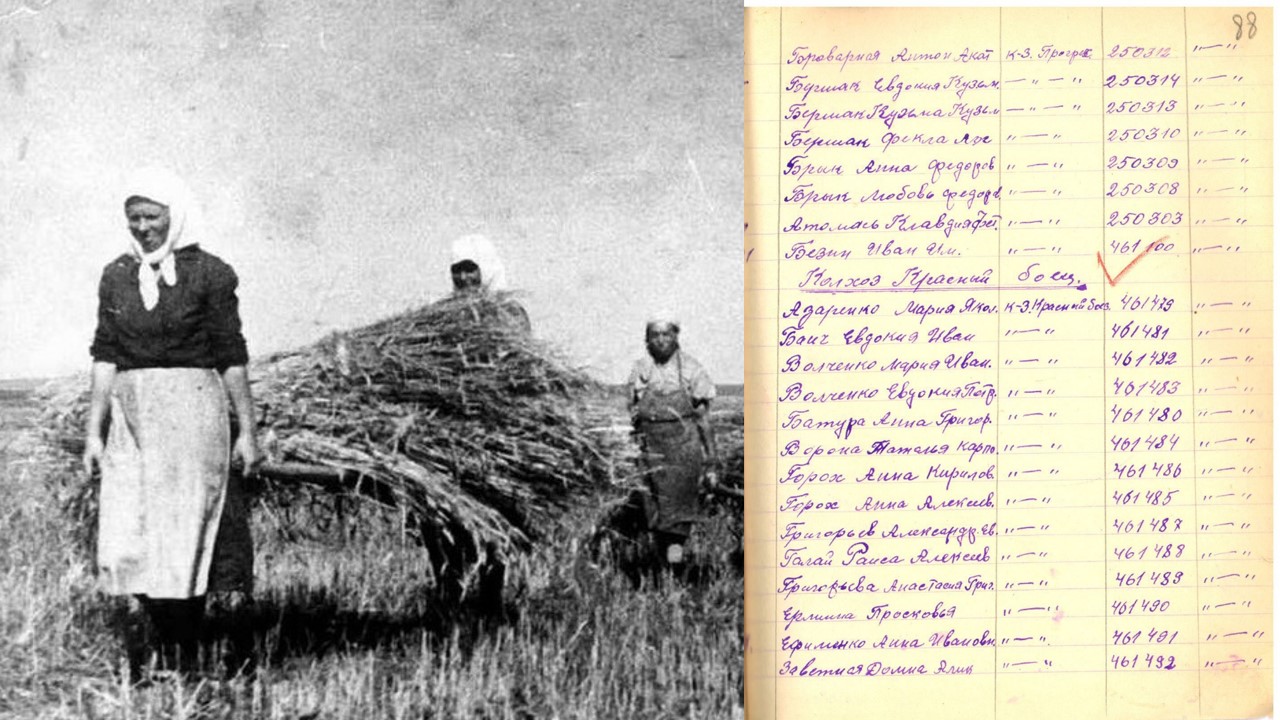 88
Броварная Антон Акат к-з. Прогрес 250312 "—"
Буршак Евдокия Кузьм. —"—" 250314 "—"
Бершак Кузьма Кузьм —"—" 250313 "—"
Бершак Фекла "—" 250310 "—"
Брык Анна Федоров "—" 250309 "—"
Брык Любовь Федоров "—" 250308 "—"
Атомась Клавдия "—" 250303 "—"
Безин Иван Им. "—" 461100 "—"
Колхоз Красный боец.
Адаренко Мария Якол. к-з. Красный боец 461479 "—"
Баич Евдокия Иван "—" 461481 "—"
Волченко Мария Иван. "—" 461482 "—"
Волченко Евдокия Петр. "—" 461483 "—"
Батура Анна Григор. "—" 461480 "—"
Ворона Таталья Карпо. "—" 461484 "—"
Горох Анна Кирилов. "—" 461486 "—"
Горох Анна Алексеев. "—" 461485 "—"
Григорьев Александр Ев. "—" 461487 "—"
Галай Раиса Алексеев "—" 461488 "—"
Григорьева Анастасия Григ. "—" 461489 "—"
Ерлина Просковья "—" 461490 "—"
Ефименко Анна Ивановн. "—" 461491 "—"
Заветная Домна "—" 461492 "—"